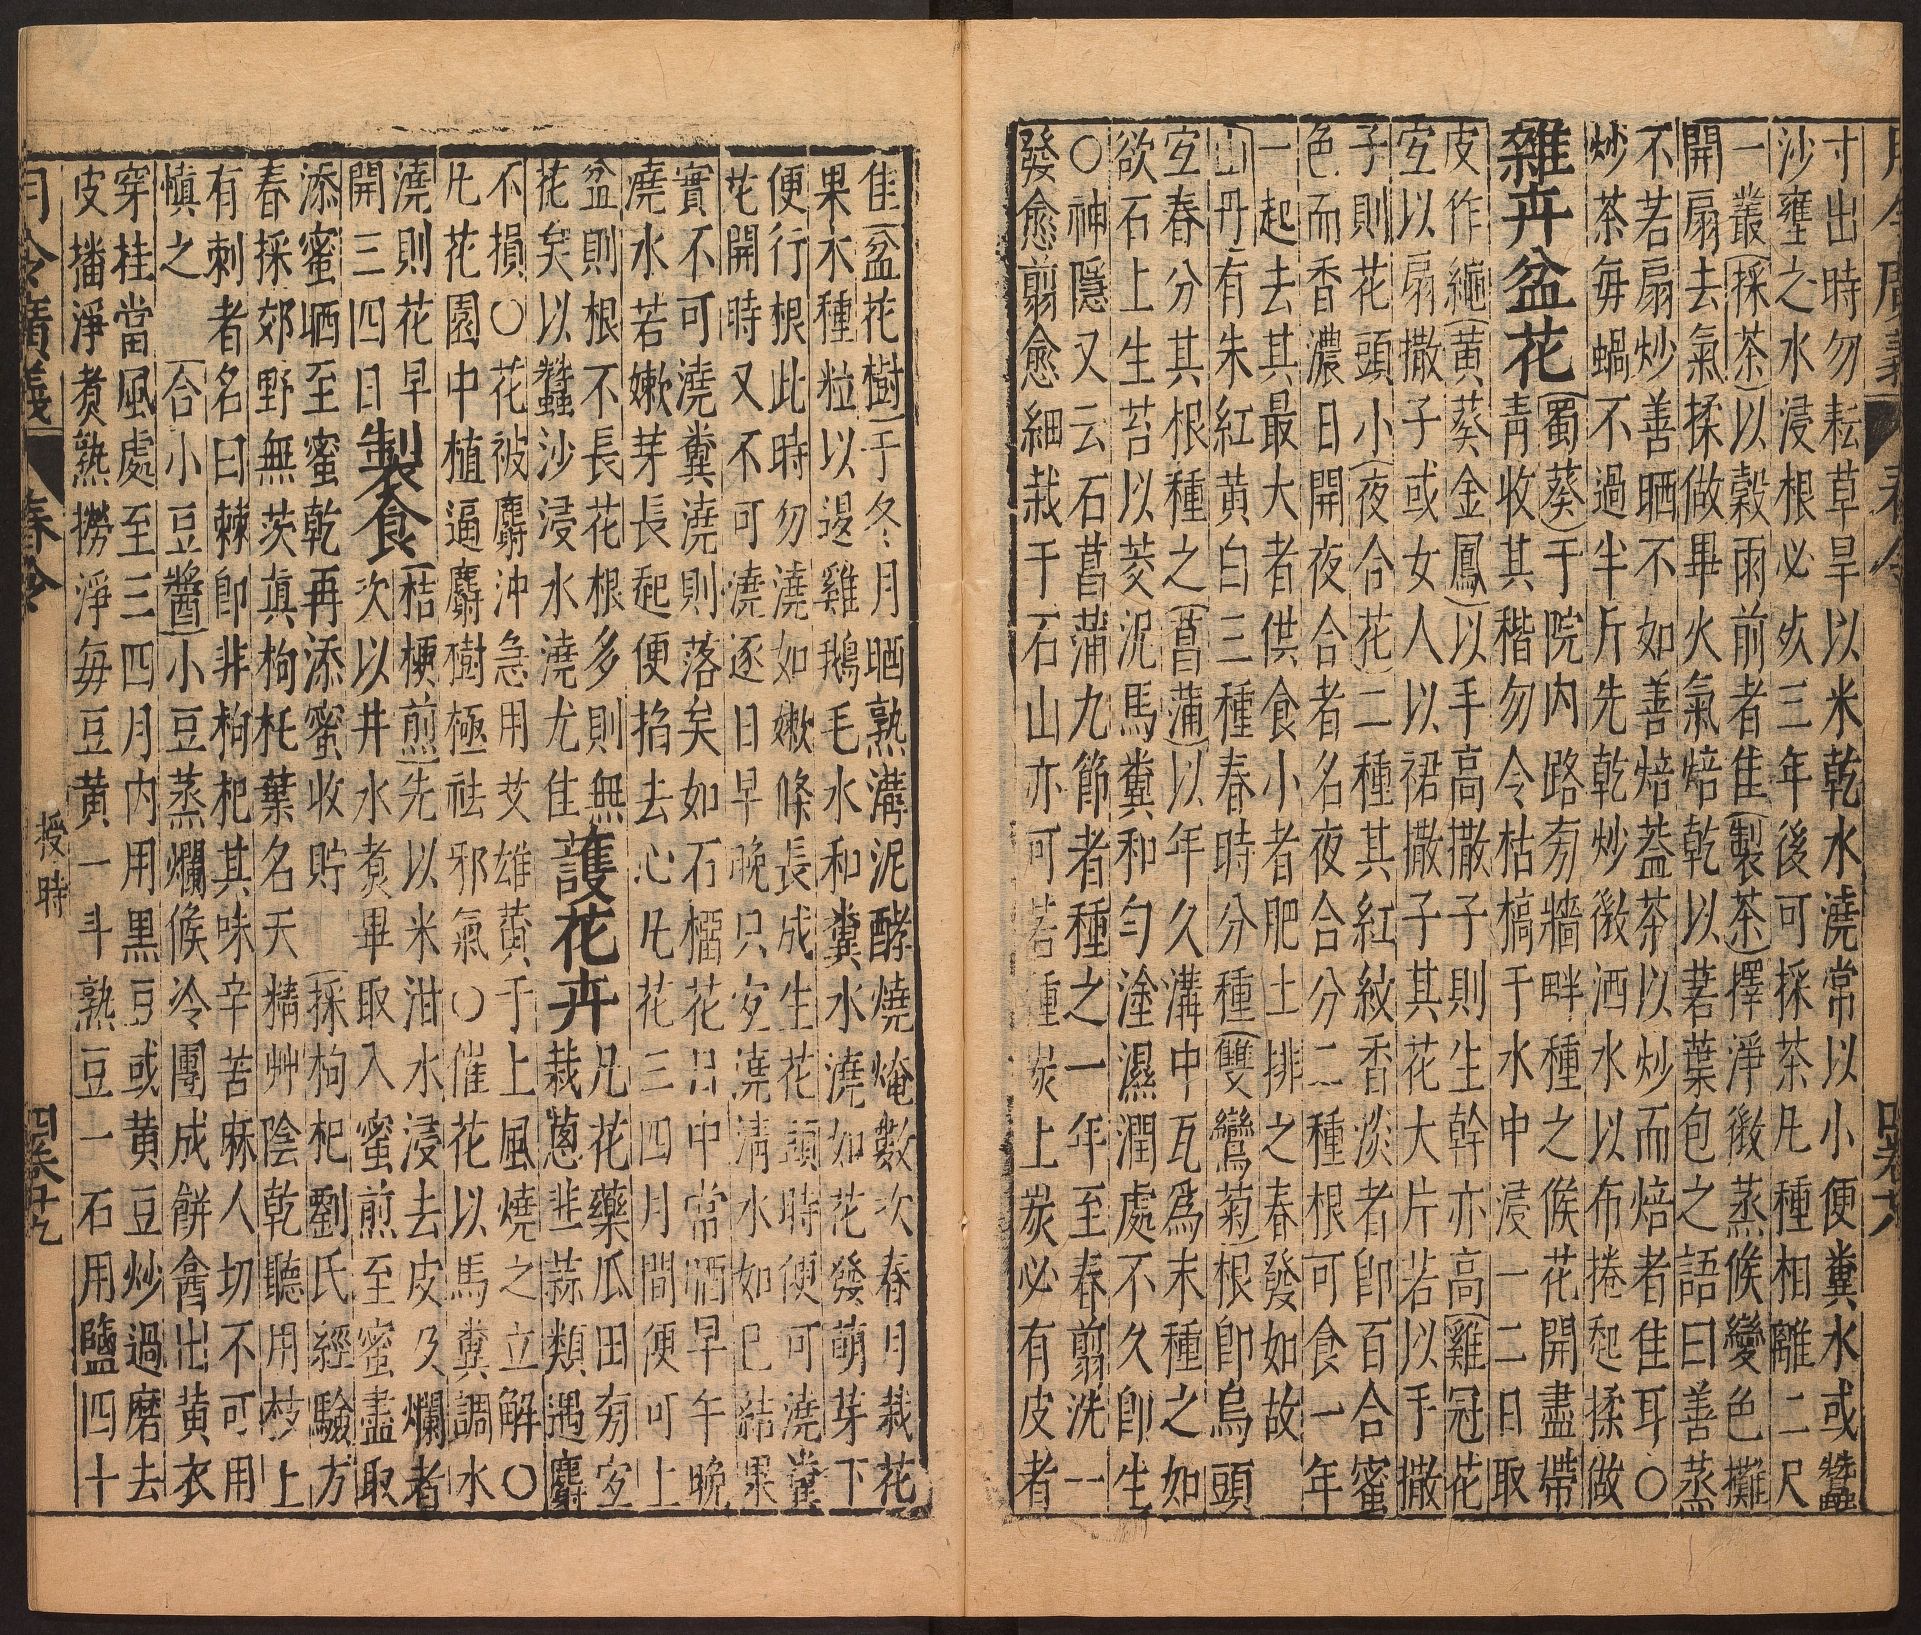 寸出時勿耘草旱以米乾水澆常以小便糞水或蠶
沙壅之水浸根必灰三年後可採茶凡種相離二尺
一叢採茶以穀雨前者隹製茶擇淨微蒸候變色攤
開扇去氣揉做畢火氣焙乾以蒻葉包之語曰善蒸
不若扇炒善晒不如善焙葢茶以炒而焙者隹耳○
炒茶每鍋不過半斤先乾炒微洒水以布捲起揉做
雜卉盆花蜀葵于院內路旁牆畔種之候花開盡帶
青收其稭勿令枯槁于水中浸一二日取
皮作繩黃葵金鳳以手高撒子則生幹亦高雞冠花
宐以扇撒子或女人以裙撒子其花大片若以手撒
子則花頭小夜合花二種其紅紋香淡者即百合蜜
色而香濃日開夜合者名夜合分二種根可食一年
一起去其最大者供食小者肥土排之春發如故
山丹有朱紅黃白三種春時分種雙鸞菊根即烏頭
宐春分其根種之菖蒲以年久溝中瓦爲末種之如
欲石上生苔以茭泥馬糞和勻塗濕潤處不久即生
○神隱又云石菖蒲九節者種之一年至春剪洗一
發愈剪愈細栽于石山亦可若種炭上炭必有皮者
月令廣義 春令 四卷十八
隹盆花樹于冬月晒熟溝泥酵燒俺數次春月栽花
果木種粒以退雞鵝毛水和糞水澆如花發萌芽下
便行根此時勿澆如嫩條長成生花頭時便可澆糞
花開時又不可澆逐日早晚只宐澆清水如已結果
實不可澆糞澆則落矣如石榴花日中常洒早午晚
澆水若嫩芽長起便掐去心凡花三四月間便可上
盆則根不長花根多則無凡花藥瓜田旁宐
花矣以蠶沙浸水澆尤隹護花卉栽蔥韭蒜類遇麝
不損○花被麝沖急用艾雄黃于上風燒之立解○
凡花園中植逼麝樹極祛邪氣○催花以馬糞調水
澆則花早製食桔梗煎先以米泔水浸去皮及爛者
開三四日次以井水煑畢取入蜜煎至蜜盡取
添蜜晒至蜜乾再添蜜收貯採枸杞劉氏經驗方
春採郊野無茨眞枸杔葉名天精艸陰乾聽用枝上
有刺者名曰棘即非枸杷其味辛苦麻人切不可用
慎之合小豆醬小豆蒸爛候冷團成餅盦出黃衣
穿桂當風處至三四月內用黑豆或黃豆炒過磨去
皮播淨煑熟撈淨每豆黃一斗熟豆一石用鹽四十
月令廣義 春令 授時 四卷十九